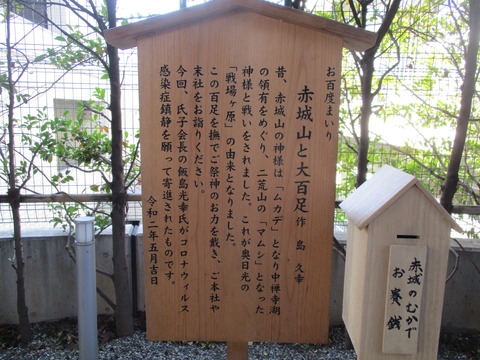 お百度まいり
赤城山と大百足 作 島 久幸
昔、赤城山の神様は「ムカデ」となり中禅寺湖
の領有をめぐり、二荒山の「マムシ」となった
神様と戦いをされました。これが奥日光の
「戦場ヶ原」の由来となりました。
この百足を撫でご祭神のお力を戴き、ご本社や
末社をお詣りください。
今回、氏子会長の飯島光幸氏がコロナウィルス
感染症鎮静を願って寄進されたものです。
令和二年五月吉日
赤城のむかで
お賽銭